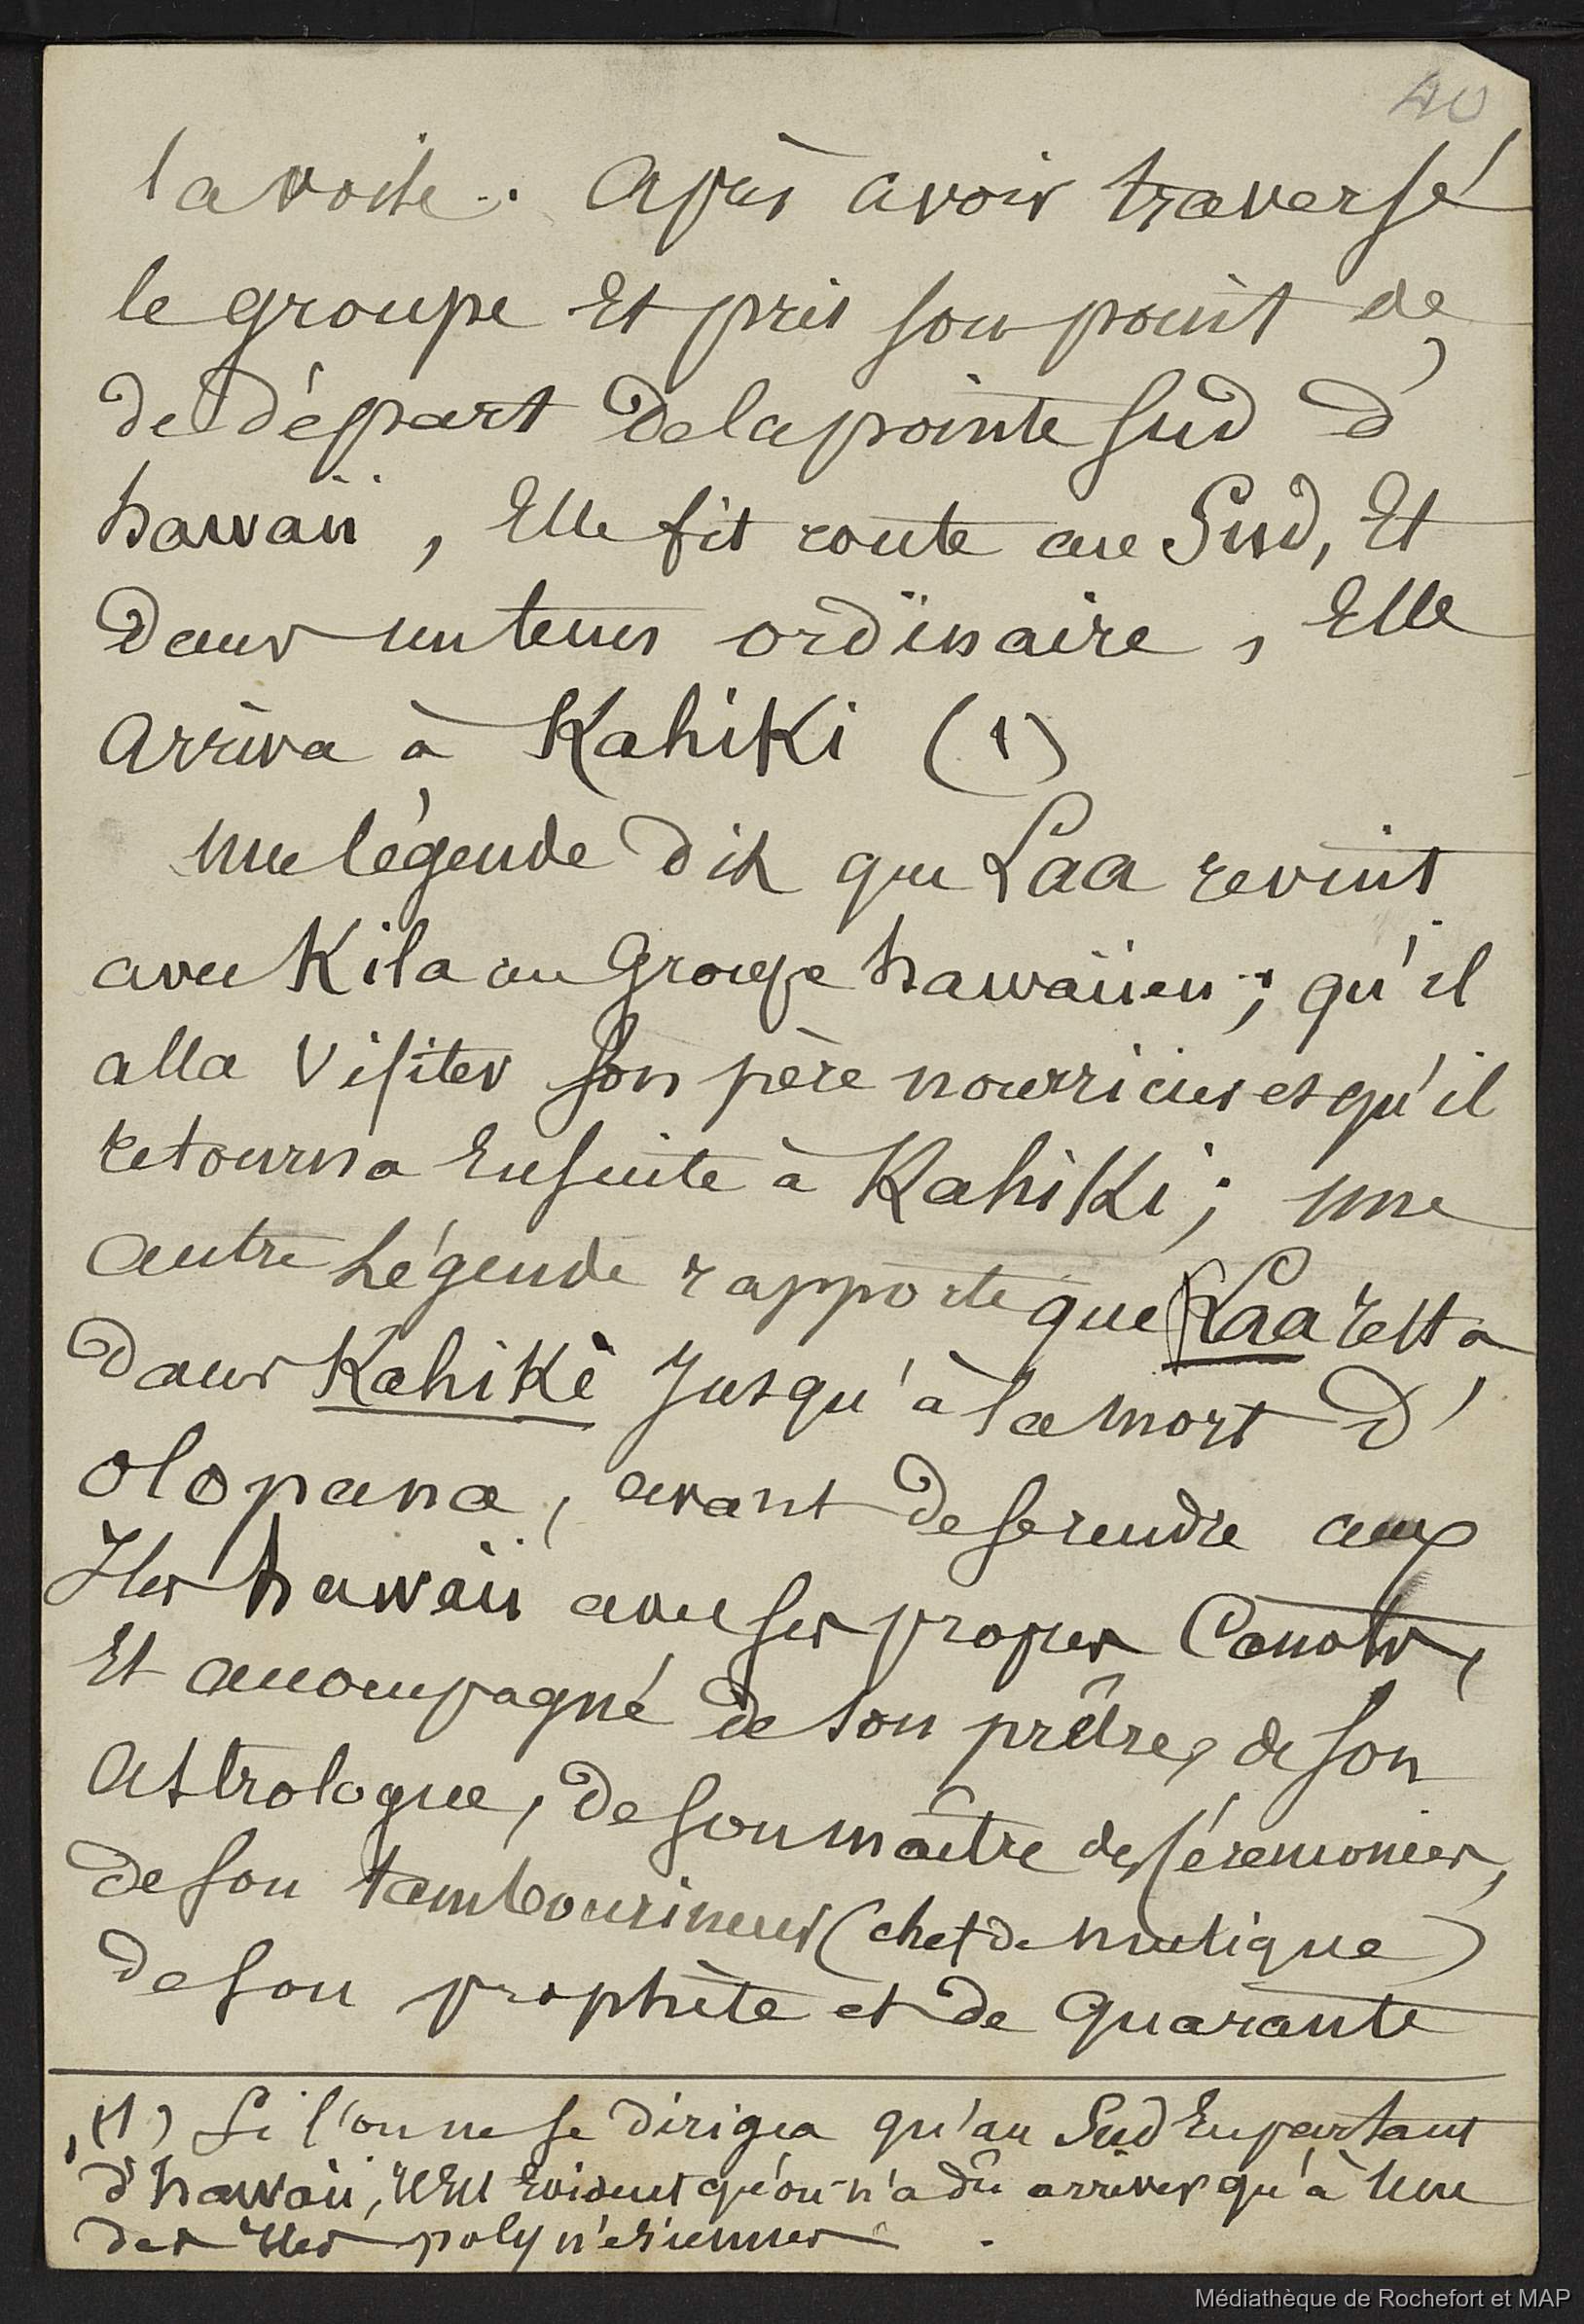 40
la voile. Après avoir traversé
le groupe Et pris son point de
de départ de la pointe sud d'
hawaïi, Elle fit route au Sud, Et
dans un tems ordinaire, Elle
arriva à Kahiki (1)
une légende dit que Laa revint
avec Kila au Groupe hawaïien ; qu'il
alla visiter son père nourricier et qu'il
retourna Ensuite à Kahiki ; une
autre Légende rapporte que Laa resta
dans Kahiki Jusqu'à la mort d'
olopana, avant de se rendre aux
Iles hawaïi avec ses propres Canots,
Et accompagné de son prêtre, de son
Astrologue, de son maître des Cérémonies,
de son tambourineur (chef de musique)
de son prophète et de quarante
(1) Si l'on ne se dirigea qu'au Sud En partant
d'hawaïi, il Est Evident qu'on n'a dû arriver qu'à une
des Iles polynésiennes.
Médiathèque de Rochefort et MAP